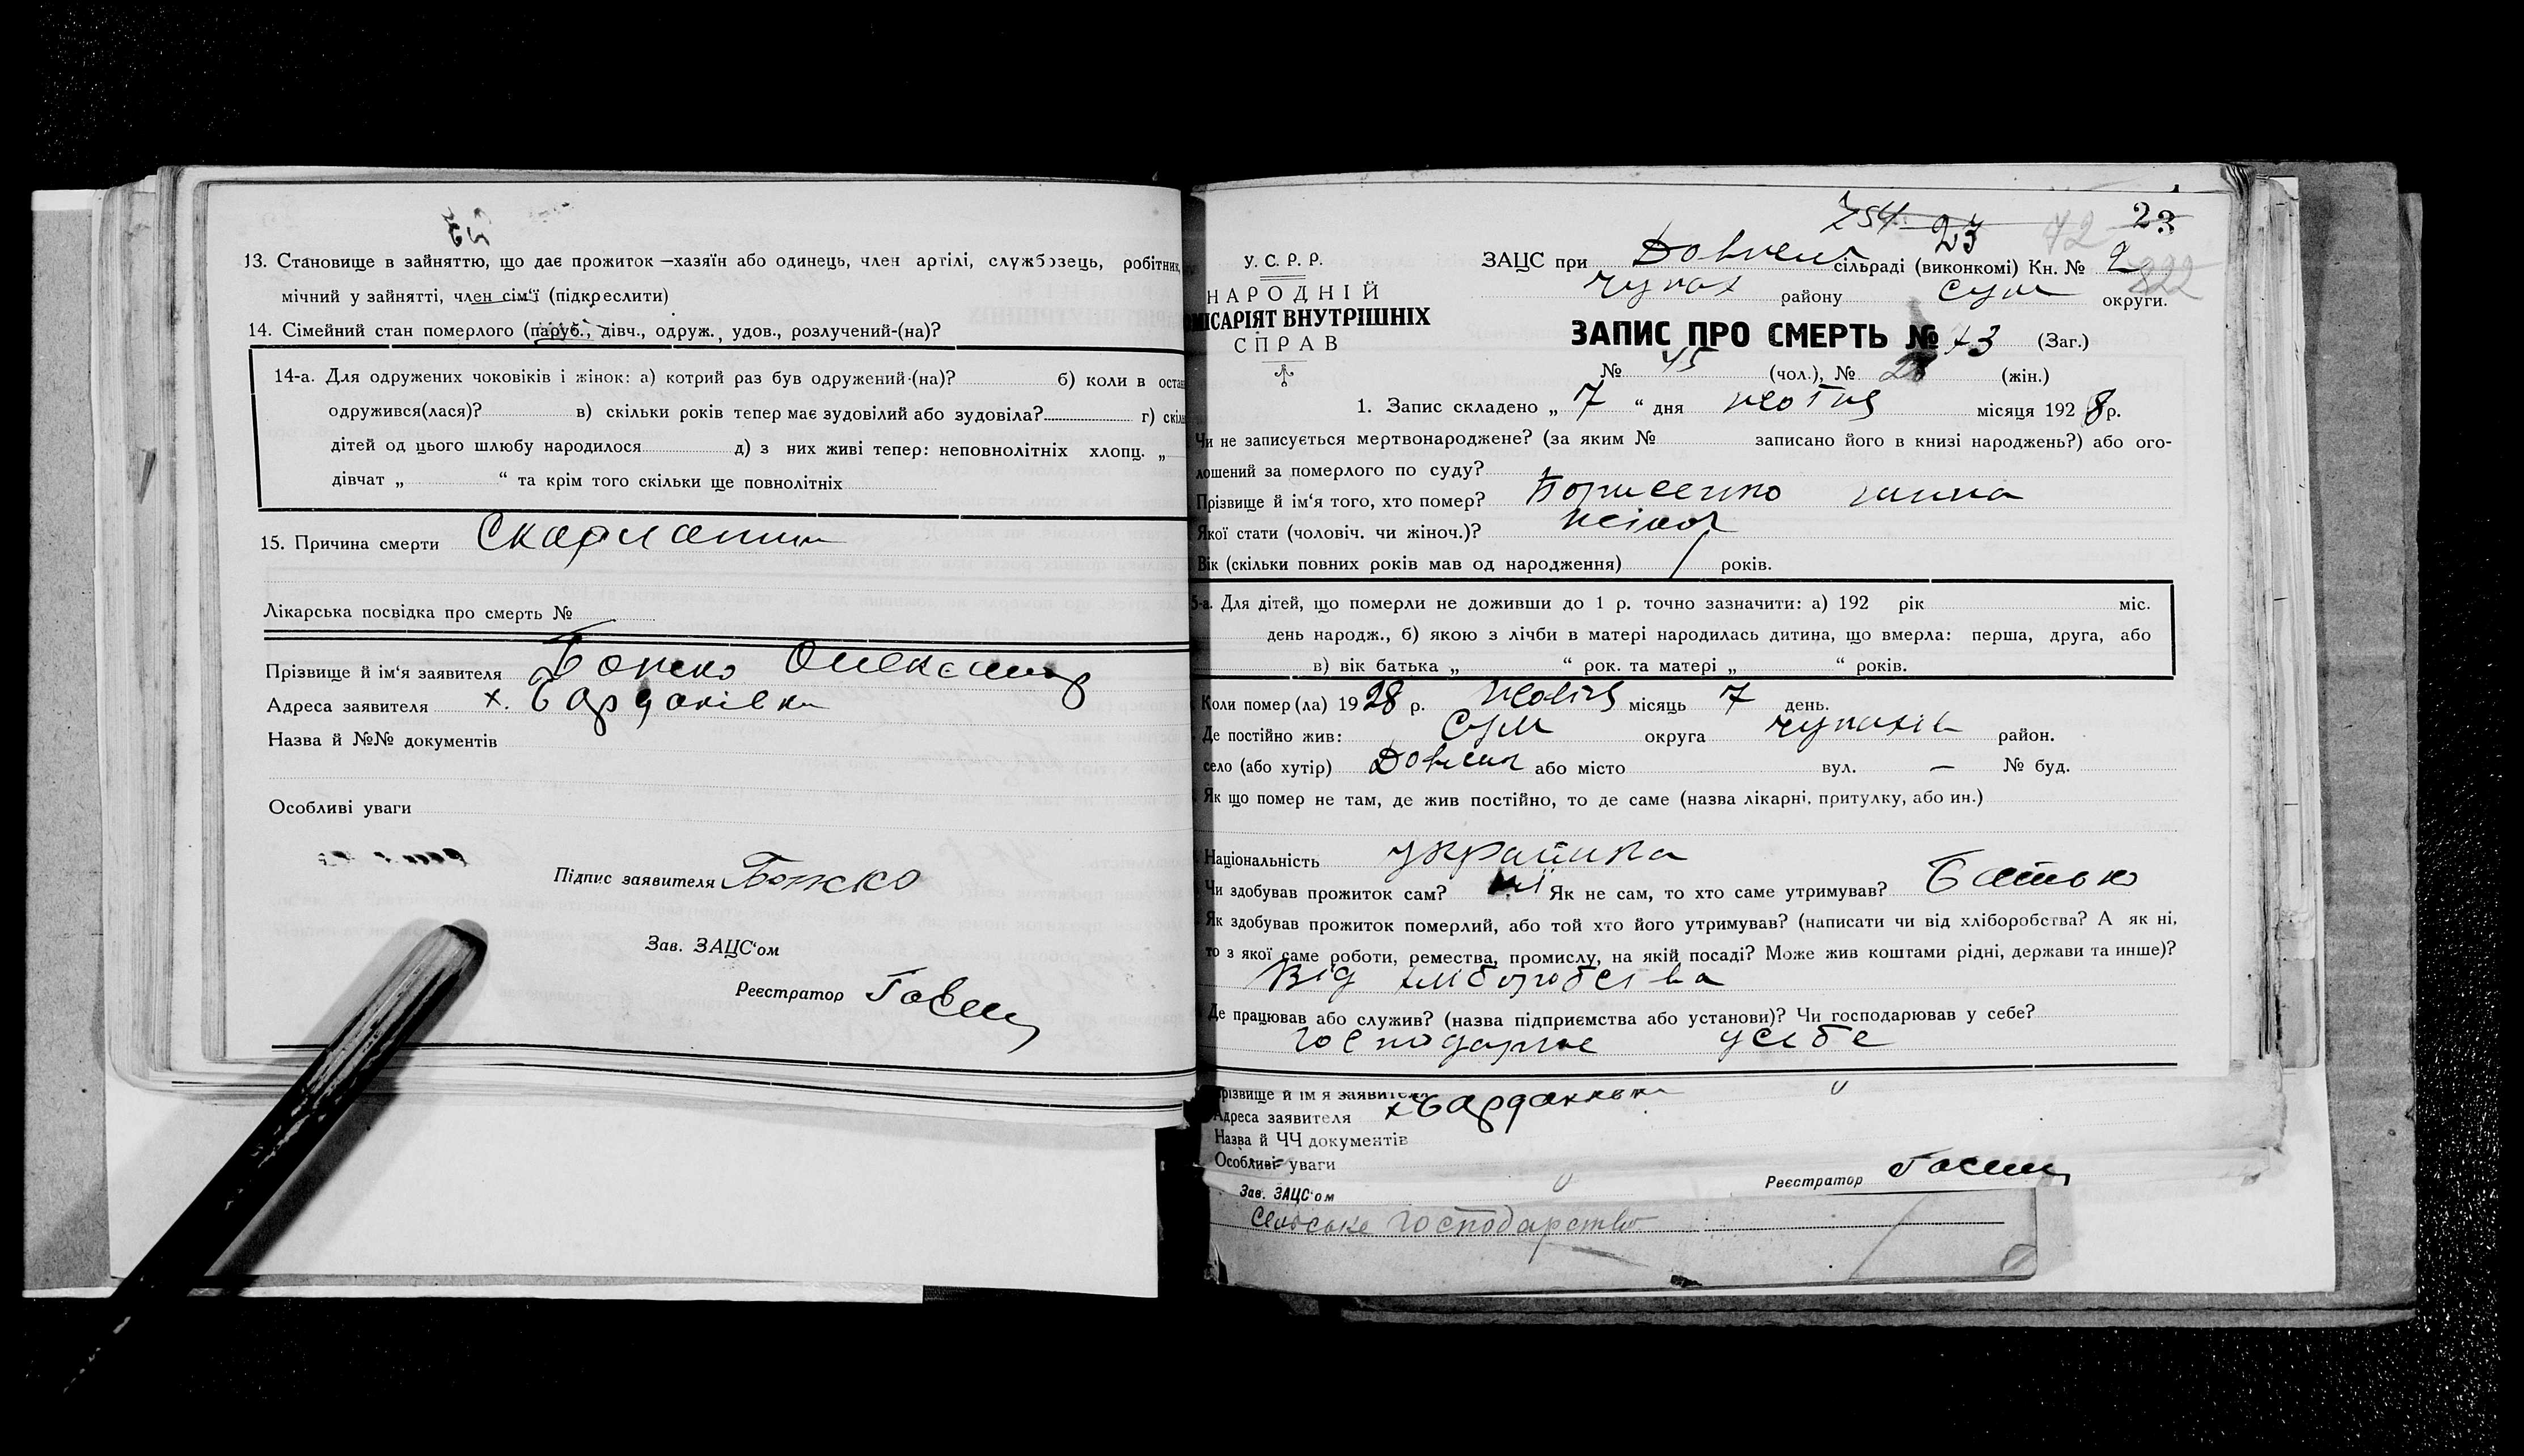 13. Становище в зайняттю, що дає прожиток — хазяїн або одинець, член артілі, службовець, робітник,
мічний у зайнятті, член сім'ї (підкреслити)
14. Сімейний стан померлого (паруб., дівч., одруж., удов., розлучений-(на)?
14-а. Для одружених чоковіків і жінок: а) котрий раз був одружений-(на)? б) коли в остан
одружився(лася)? в) скільки років тепер має зудовілий або зудовіла? г) скіль
дітей од цього шлюбу народилося д) з них живі тепер: неповнолітніх хлопц. „
дівчат „ “ та крім того скільки ще повнолітніх
15. Причина смерти Скарлатин
Лікарська посвідка про смерть №
Прізвище й ім'я заявителя Божко Олександ
Адреса заявителя х. Бардаківка
Назва й №№ документів
Особливі уваги
Підпис заявителя Божко
Зав. ЗАЦС'ом
Реєстратор
254 23 42 23
У. С. Р. Р.
НАРОДНІЙ
МІСАРІЯТ ВНУТРІШНІХ
СПРАВ
ЗАЦС при сільраді (виконкомі) Кн. № 2
822
Чупах району Сум округи.
ЗАПИС ПРО СМЕРТЬ № 73 (Заг.)
№ 45 (чол.), № 28 (жін.)
1. Запис складено „ 7 “ дня жовтня місяця 1928 р.
Чи не записується мертвонароджене? (за яким № записано його в книзі народжень?) або ого-
лошений за померлого по суду?
Прізвище й ім'я того, хто помер? Борисенко Ганна
Якої стати (чоловіч. чи жіноч.)? жіноч
Вік (скільки повних років мав од народження) 1 років.
5-а. Для дітей, що померли не доживши до 1 р. точно зазначити: а) 192 рік міс.
день народж., б) якою з лічби в матері народилась дитина, що вмерла: перша, друга, або
в) вік батька „ “ рок. та матері „ “ років.
Коли помер(ла) 1928 р. жовтня місяць 7 день.
Де постійно жив: Сум округа Чупахів район.
село (або хутір) або місто вул. — № буд.
Як що помер не там, де жив постійно, то де саме (назва лікарні, притулку, або ин.)
Національність українка
Чи здобував прожиток сам? ні Як не сам, то хто саме утримував? Батько
Як здобував прожиток померлий, або той хто його утримував? (написати чи від хліборобства? А як ні,
то з якої саме роботи, ремества, промислу, на якій посаді? Може жив коштами рідні, держави та инше)?
Від хліборобства
Де працював або служив? (назва підприємства або установи)? Чи господарював у себе?
господарює у себе
різвище й ім я заявителя
Адреса заявителя х Бардаківка
Назва й ЧЧ документів
Особливі уваги
Реєстратор
Зав. ЗАЦС'ом
сельське господарство